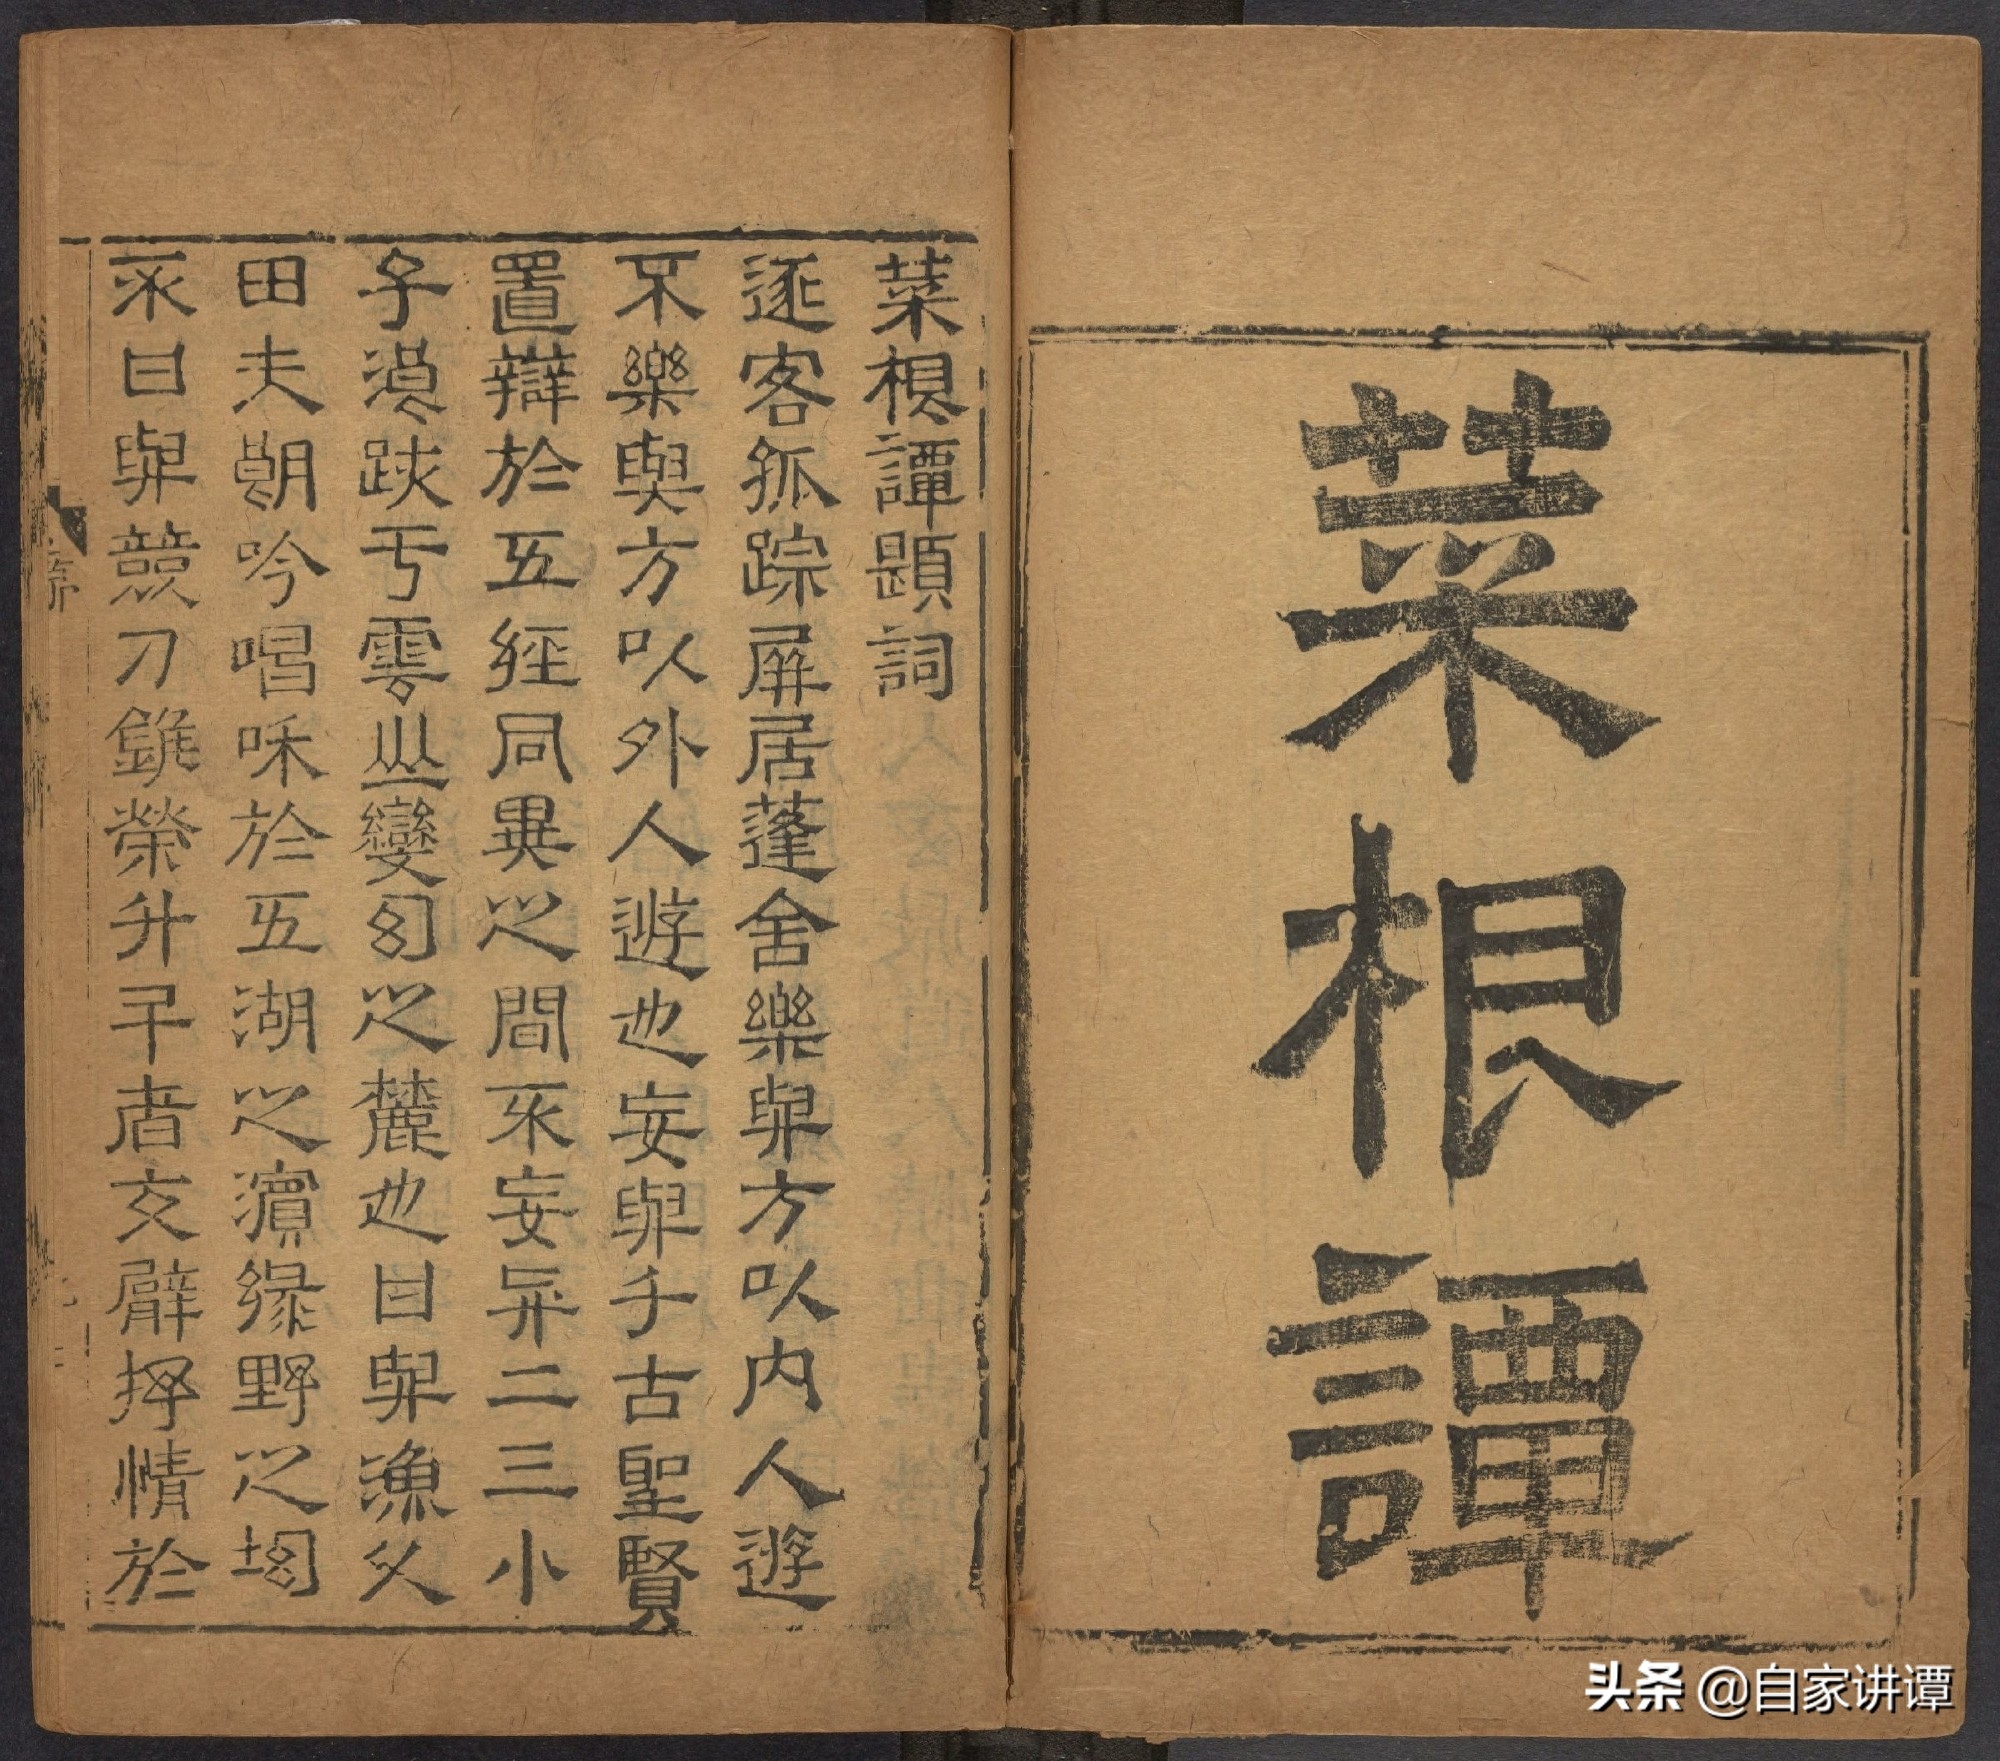 菜根譚
菜根譚題詞
逐客孤踪屏居蓬舍樂與方以內人遊
不樂與方以外人遊也妄與千古聖賢
置辯於五經同異之間不妄與二三小
子浪跡于雲山變幻之麓也日與漁父
田夫朗吟唱咊於五湖之濱綠野之坳
不日與競刀錐榮升斗者交臂抒情於
序
头条 @自家讲谭